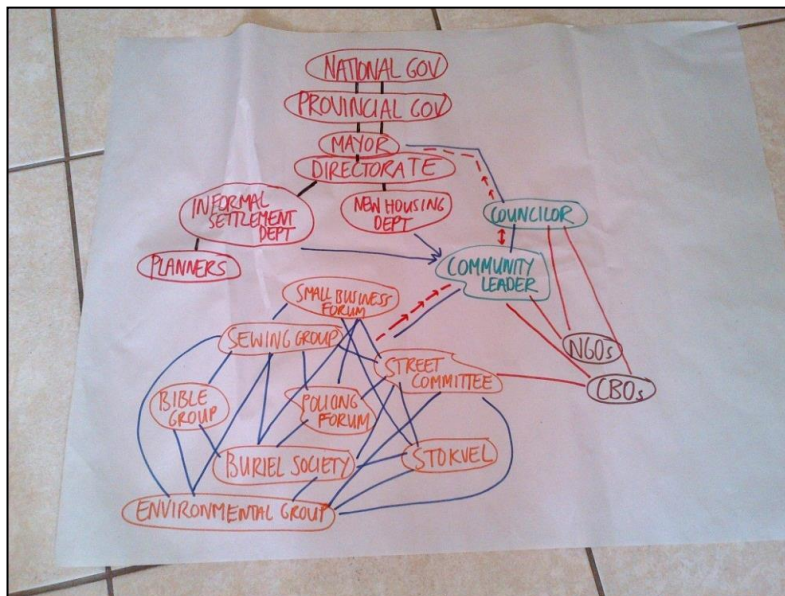 NATIONAL GOV
PROVINCIAL GOV
MAYOR
DIRECTORATE
INFORMAL
SETTLEMENT
DEPT
NEW HOUSING
DEPT
COUNCILOR
PLANNERS
COMMUNITY
LEADER
SMALL BUSINESS
FORUM
SEWING GROUP
NGOs
STREET
COMMITTEE
CBOs
BIBLE
GROUP
POLICING
FORUM
BURIEL SOCIETY
STOKVEL
ENVIRONMENTAL GROUP